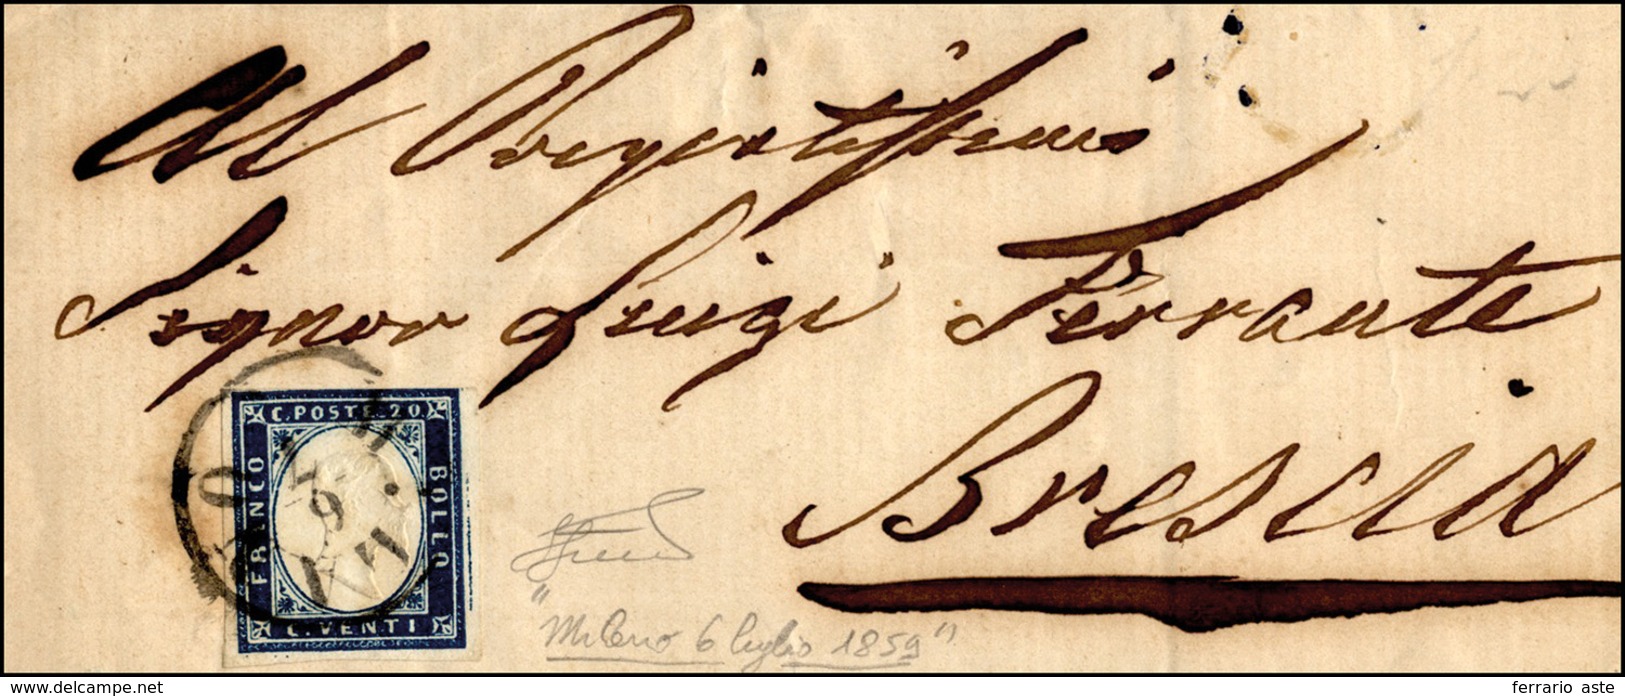 Al Pregiatissimi
Signor Luigi Ferrante
Brescia
C. POSTE 20.
FRANCO
BOLLO
C. VENTI
6
"Milano 6 luglio 1859"
www.delcampe.net
ferrario aste